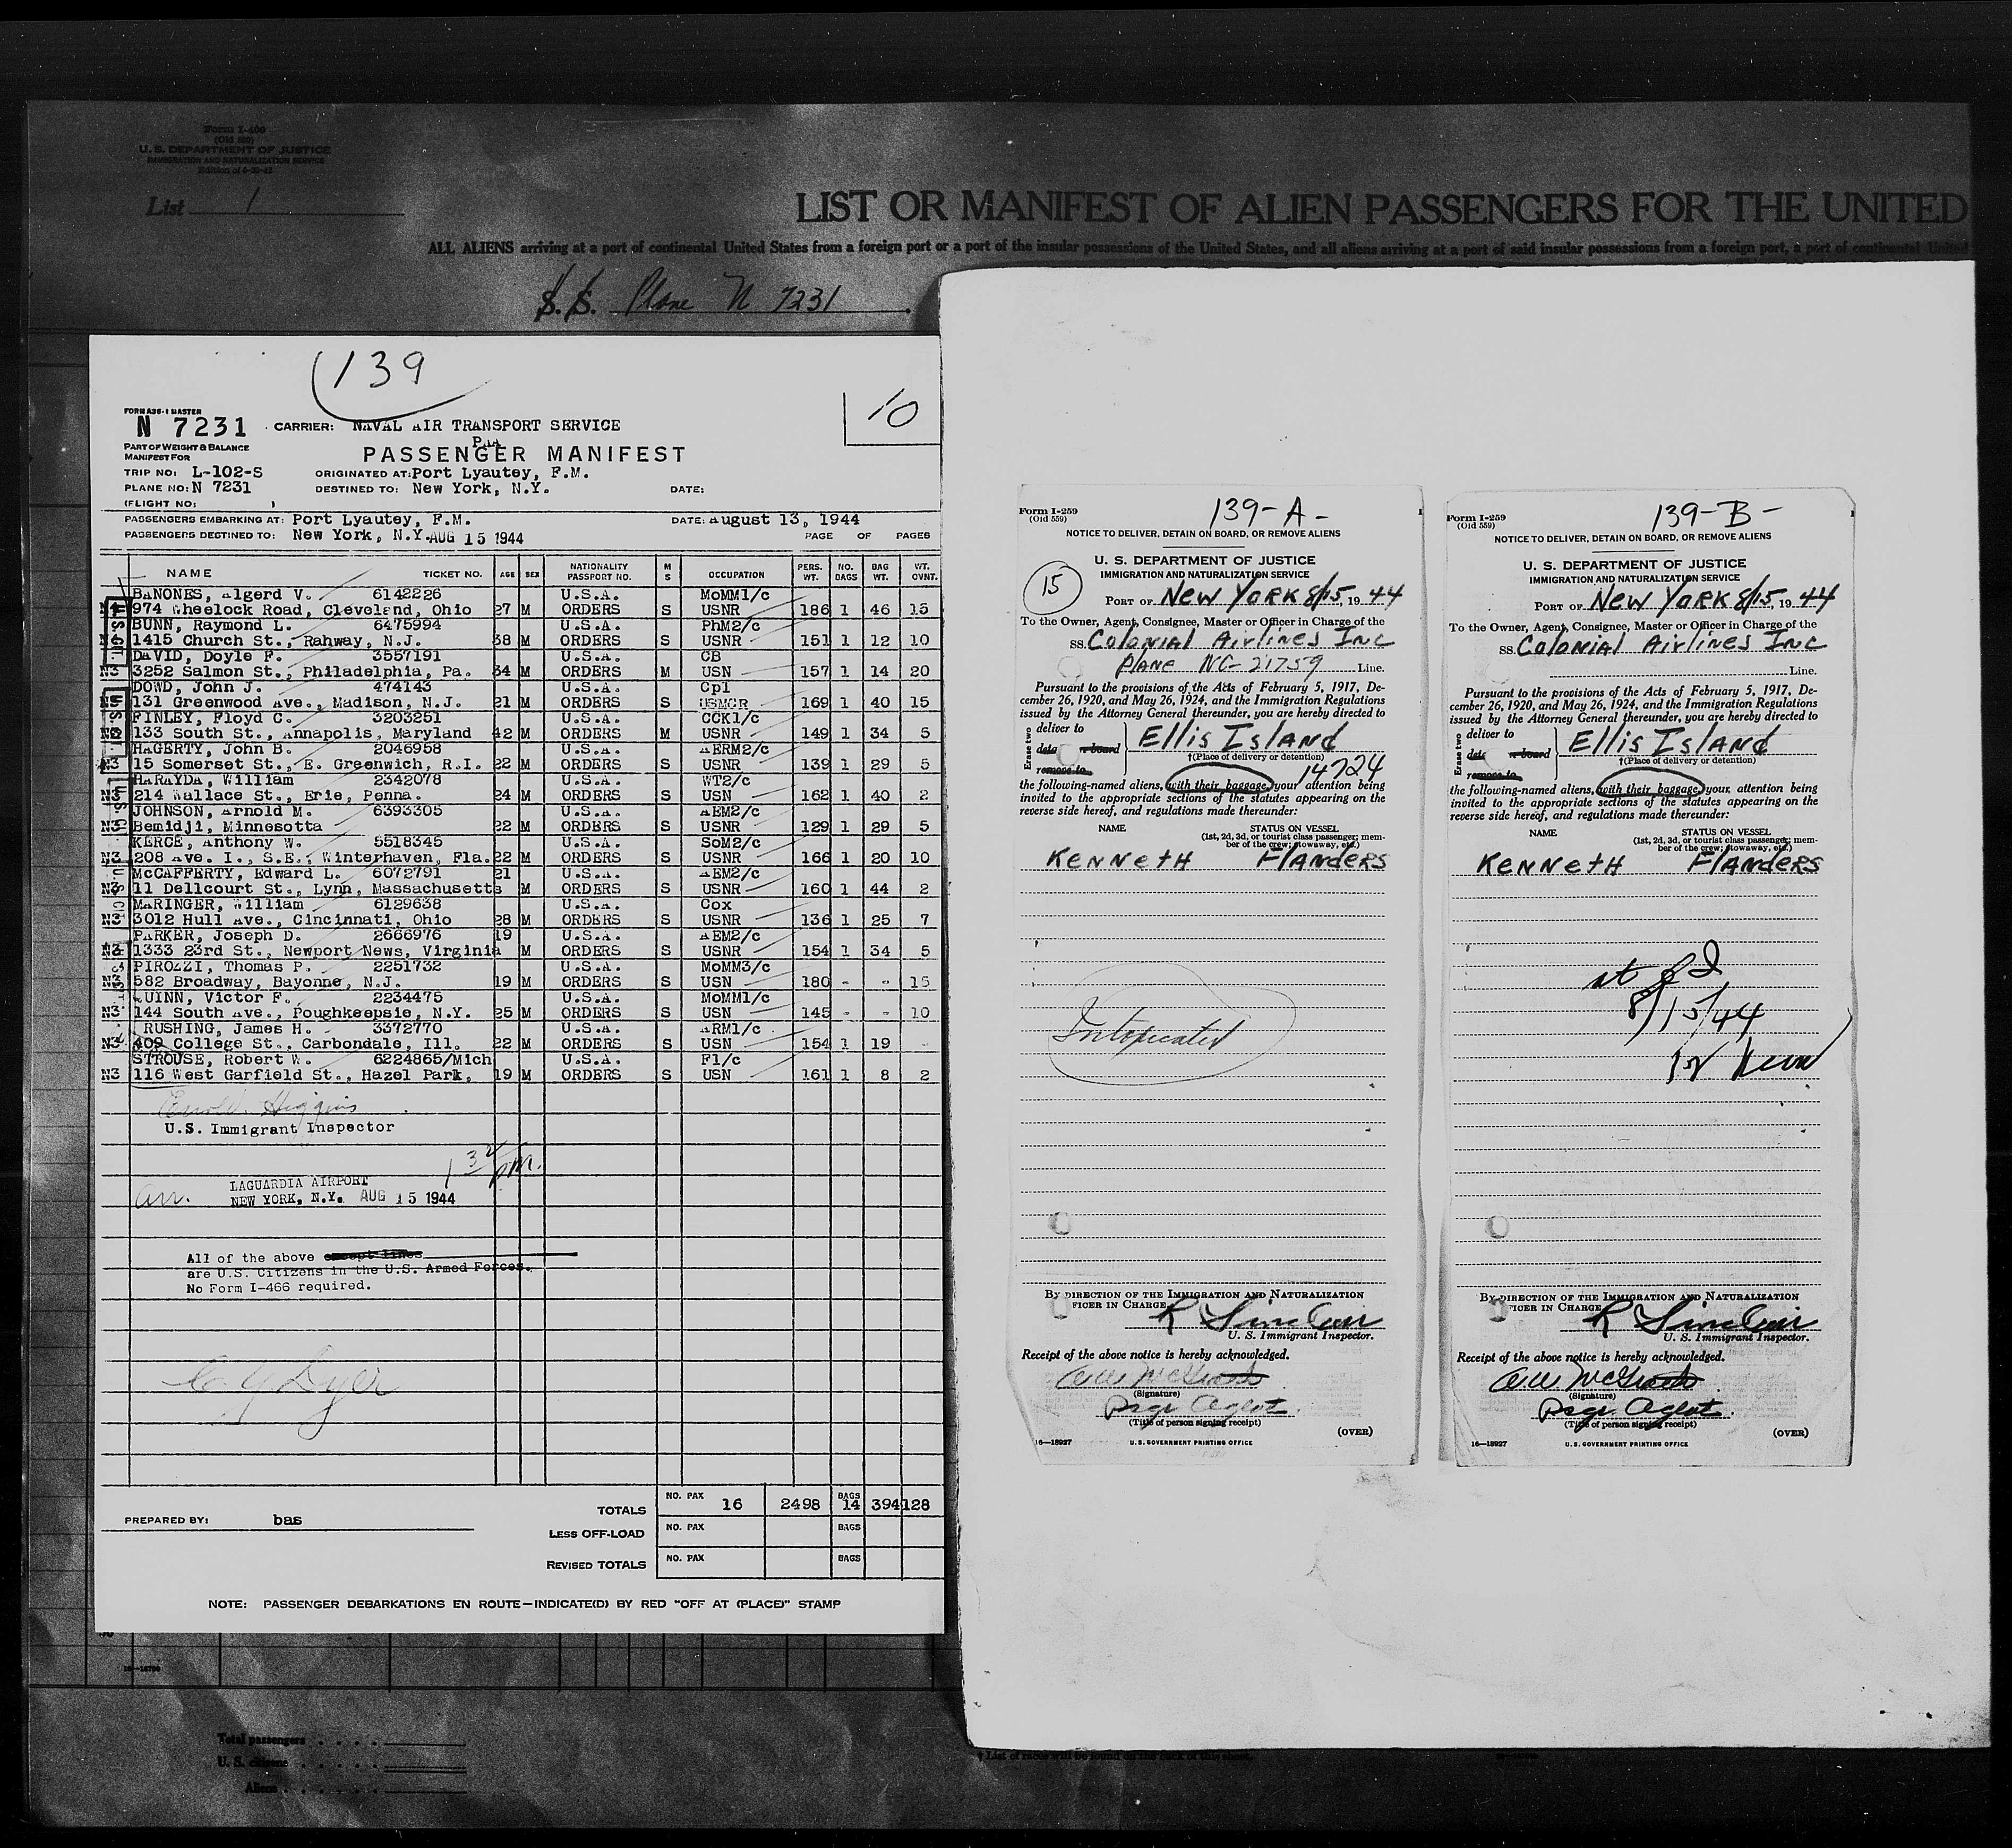 Form I-400
(Old 500)
U. S. DEPARTMENT OF JUSTICE
IMMIGRATION AND NATURALIZATION SERVICE
List 1
LIST OR MANIFEST OF ALIEN PASSENGERS FOR THE UNITED
ALL ALIENS arriving at a port of continental United States from a foreign port or a port of the insular possessions of the United States, and all aliens arriving at a port of said insular possessions from a foreign port, a port of continental United
S.S. Plane N 7231
139
10
FORM A36-1 MASTER
N 7231 CARRIER: NAVAL AIR TRANSPORT SERVICE
PART OF WEIGHT & BALANCE
MANIFEST FOR
PASSENGER MANIFEST
TRIP NO: L-102-S ORIGINATED AT: Port Lyautey, F.M.
PLANE NO: N 7231 DESTINED TO: New York, N.Y. DATE:
(FLIGHT NO: )
PASSENGERS EMBARKING AT: Port Lyautey, F.M. DATE: August 13, 1944
PASSENGERS DESTINED TO: New York, N.Y. AUG 15 1944 PAGE OF PAGES
NAME TICKET NO. AGE SEX NATIONALITY PASSPORT NO. M S OCCUPATION PERS. WT. NO. BAGS BAG WT. WT. OVNT.
BANONES, Algerd V. 6142226 U.S.A. MoMM1/c
974 Wheelock Road, Cleveland, Ohio 27 M ORDERS S USNR 186 1 46 15
BUNN, Raymond L. 6475994 U.S.A. PhM2/c
1415 Church St., Rahway, N.J. 38 M ORDERS S USNR 151 1 12 10
DAVID, Doyle F. 3557191 U.S.A. CB
N3 3252 Salmon St., Philadelphia, Pa. 34 M ORDERS M USN 157 1 14 20
DOWD, John J. 474143 U.S.A. Cpl
131 Greenwood Ave., Madison, N.J. 21 M ORDERS S USMCR 169 1 40 15
FINLEY, Floyd C. 3203251 U.S.A. CCK1/c
133 South St., Annapolis, Maryland 42 M ORDERS M USN 149 1 34 5
HAGERTY, John B. 2046958 U.S.A. AERM2/c
N3 15 Somerset St., E. Greenwich, R.I. 22 M ORDERS S USNR 139 1 29 5
HARAYDA, William 2342078 U.S.A. WT2/c
N3 214 Wallace St., Erie, Penna. 24 M ORDERS S USN 162 1 40 2
JOHNSON, Arnold M. 6393305 U.S.A. AEM2/c
N3 Bemidji, Minnesotta 22 M ORDERS S USNR 129 1 29 5
KERCE, Anthony W. 5518345 U.S.A. SoM2/c
N3 208 Ave. I., S.E., Winterhaven, Fla. 22 M ORDERS S USNR 166 1 20 10
McCAFFERTY, Edward L. 6072791 21 U.S.A. AEM2/c
N3 11 Dellcourt St., Lynn, Massachusetts M ORDERS S USNR 160 1 44 2
MARINGER, William 6129638 U.S.A. Cox
N3 3012 Hull Ave., Cincinnati, Ohio 28 M ORDERS S USNR 136 1 25 7
PARKER, Joseph D. 2666976 19 U.S.A. AEM2/c
N3 1333 23rd St., Newport News, Virginia M ORDERS S USNR 154 1 34 5
PIROZZI, Thomas P. 2251732 U.S.A. MoMM3/c
N3 582 Broadway, Bayonne, N.J. 19 M ORDERS S USN 180 - - 15
QUINN, Victor F. 2234475 U.S.A. MoMM1/c
N3 144 South Ave., Poughkeepsie, N.Y. 25 M ORDERS S USN 145 - - 10
RUSHING, James H. 3372770 U.S.A. ARM1/c
N3 409 College St., Carbondale, Ill. 22 M ORDERS S USN 154 1 19 -
STROUSE, Robert W. 6224865/Mich U.S.A. F1/c
N3 116 West Garfield St., Hazel Park, 19 M ORDERS S USN 161 1 8 2
Higgins
U.S. Immigrant Inspector
1 32/pm.
arr. LAGUARDIA AIRPORT
NEW YORK, N.Y. AUG 15 1944
All of the above except lines
are U.S. Citizens in the U.S. Armed Forces.
No Form I-466 required.
C G Dyer
TOTALS NO. PAX 16 2498 BAGS 14 394 128
PREPARED BY: bas
LESS OFF-LOAD NO. PAX BAGS
REVISED TOTALS NO. PAX BAGS
NOTE: PASSENGER DEBARKATIONS EN ROUTE—INDICATE(D) BY RED "OFF AT (PLACE)" STAMP
16—18706
Total passengers
U. S. citizens
Aliens
Form I-259
(Old 559)
139-A-
NOTICE TO DELIVER, DETAIN ON BOARD, OR REMOVE ALIENS
U. S. DEPARTMENT OF JUSTICE
IMMIGRATION AND NATURALIZATION SERVICE
15
PORT OF New York 8/15, 1944
To the Owner, Agent, Consignee, Master or Officer in Charge of the
SS. Colonial Airlines Inc
Plane NC-21759 Line.
Pursuant to the provisions of the Acts of February 5, 1917, De-
cember 26, 1920, and May 26, 1924, and the Immigration Regulations
issued by the Attorney General thereunder, you are hereby directed to
Erase two
deliver to
Ellis Island
remove to
†(Place of delivery or detention)
14724
the following-named aliens, with their baggage, your attention being
invited to the appropriate sections of the statutes appearing on the
reverse side hereof, and regulations made thereunder:
NAME STATUS ON VESSEL
(1st, 2d, 3d, or tourist class passenger; mem-
ber of the crew; stowaway, etc.)
Kenneth Flanders
Intoxicated
BY DIRECTION OF THE IMMIGRATION AND NATURALIZATION
FICER IN CHARGE
R Sinclair
U. S. Immigrant Inspector.
Receipt of the above notice is hereby acknowledged.
(Signature)
Psgr Agent
(Title of person signing receipt)
(OVER)
16—18927 U. S. GOVERNMENT PRINTING OFFICE
Form I-259
(Old 559)
139-B-
NOTICE TO DELIVER, DETAIN ON BOARD, OR REMOVE ALIENS
U. S. DEPARTMENT OF JUSTICE
IMMIGRATION AND NATURALIZATION SERVICE
PORT OF New York 8/15, 1944
To the Owner, Agent, Consignee, Master or Officer in Charge of the
SS. Colonial Airlines Inc
Line.
Pursuant to the provisions of the Acts of February 5, 1917, De-
cember 26, 1920, and May 26, 1924, and the Immigration Regulations
issued by the Attorney General thereunder, you are hereby directed to
Erase two
deliver to
Ellis Island
remove to
†(Place of delivery or detention)
the following-named aliens, with their baggage, your attention being
invited to the appropriate sections of the statutes appearing on the
reverse side hereof, and regulations made thereunder:
NAME STATUS ON VESSEL
(1st, 2d, 3d, or tourist class passenger; mem-
ber of the crew; stowaway, etc.)
Kenneth Flanders
8/15/44
BY DIRECTION OF THE IMMIGRATION AND NATURALIZATION
FICER IN CHARGE
R Sinclair
U. S. Immigrant Inspector.
Receipt of the above notice is hereby acknowledged.
(Signature)
Psgr. Agent
(Title of person signing receipt)
(OVER)
16—18927 U. S. GOVERNMENT PRINTING OFFICE
† List of races will be found on the back of this sheet.